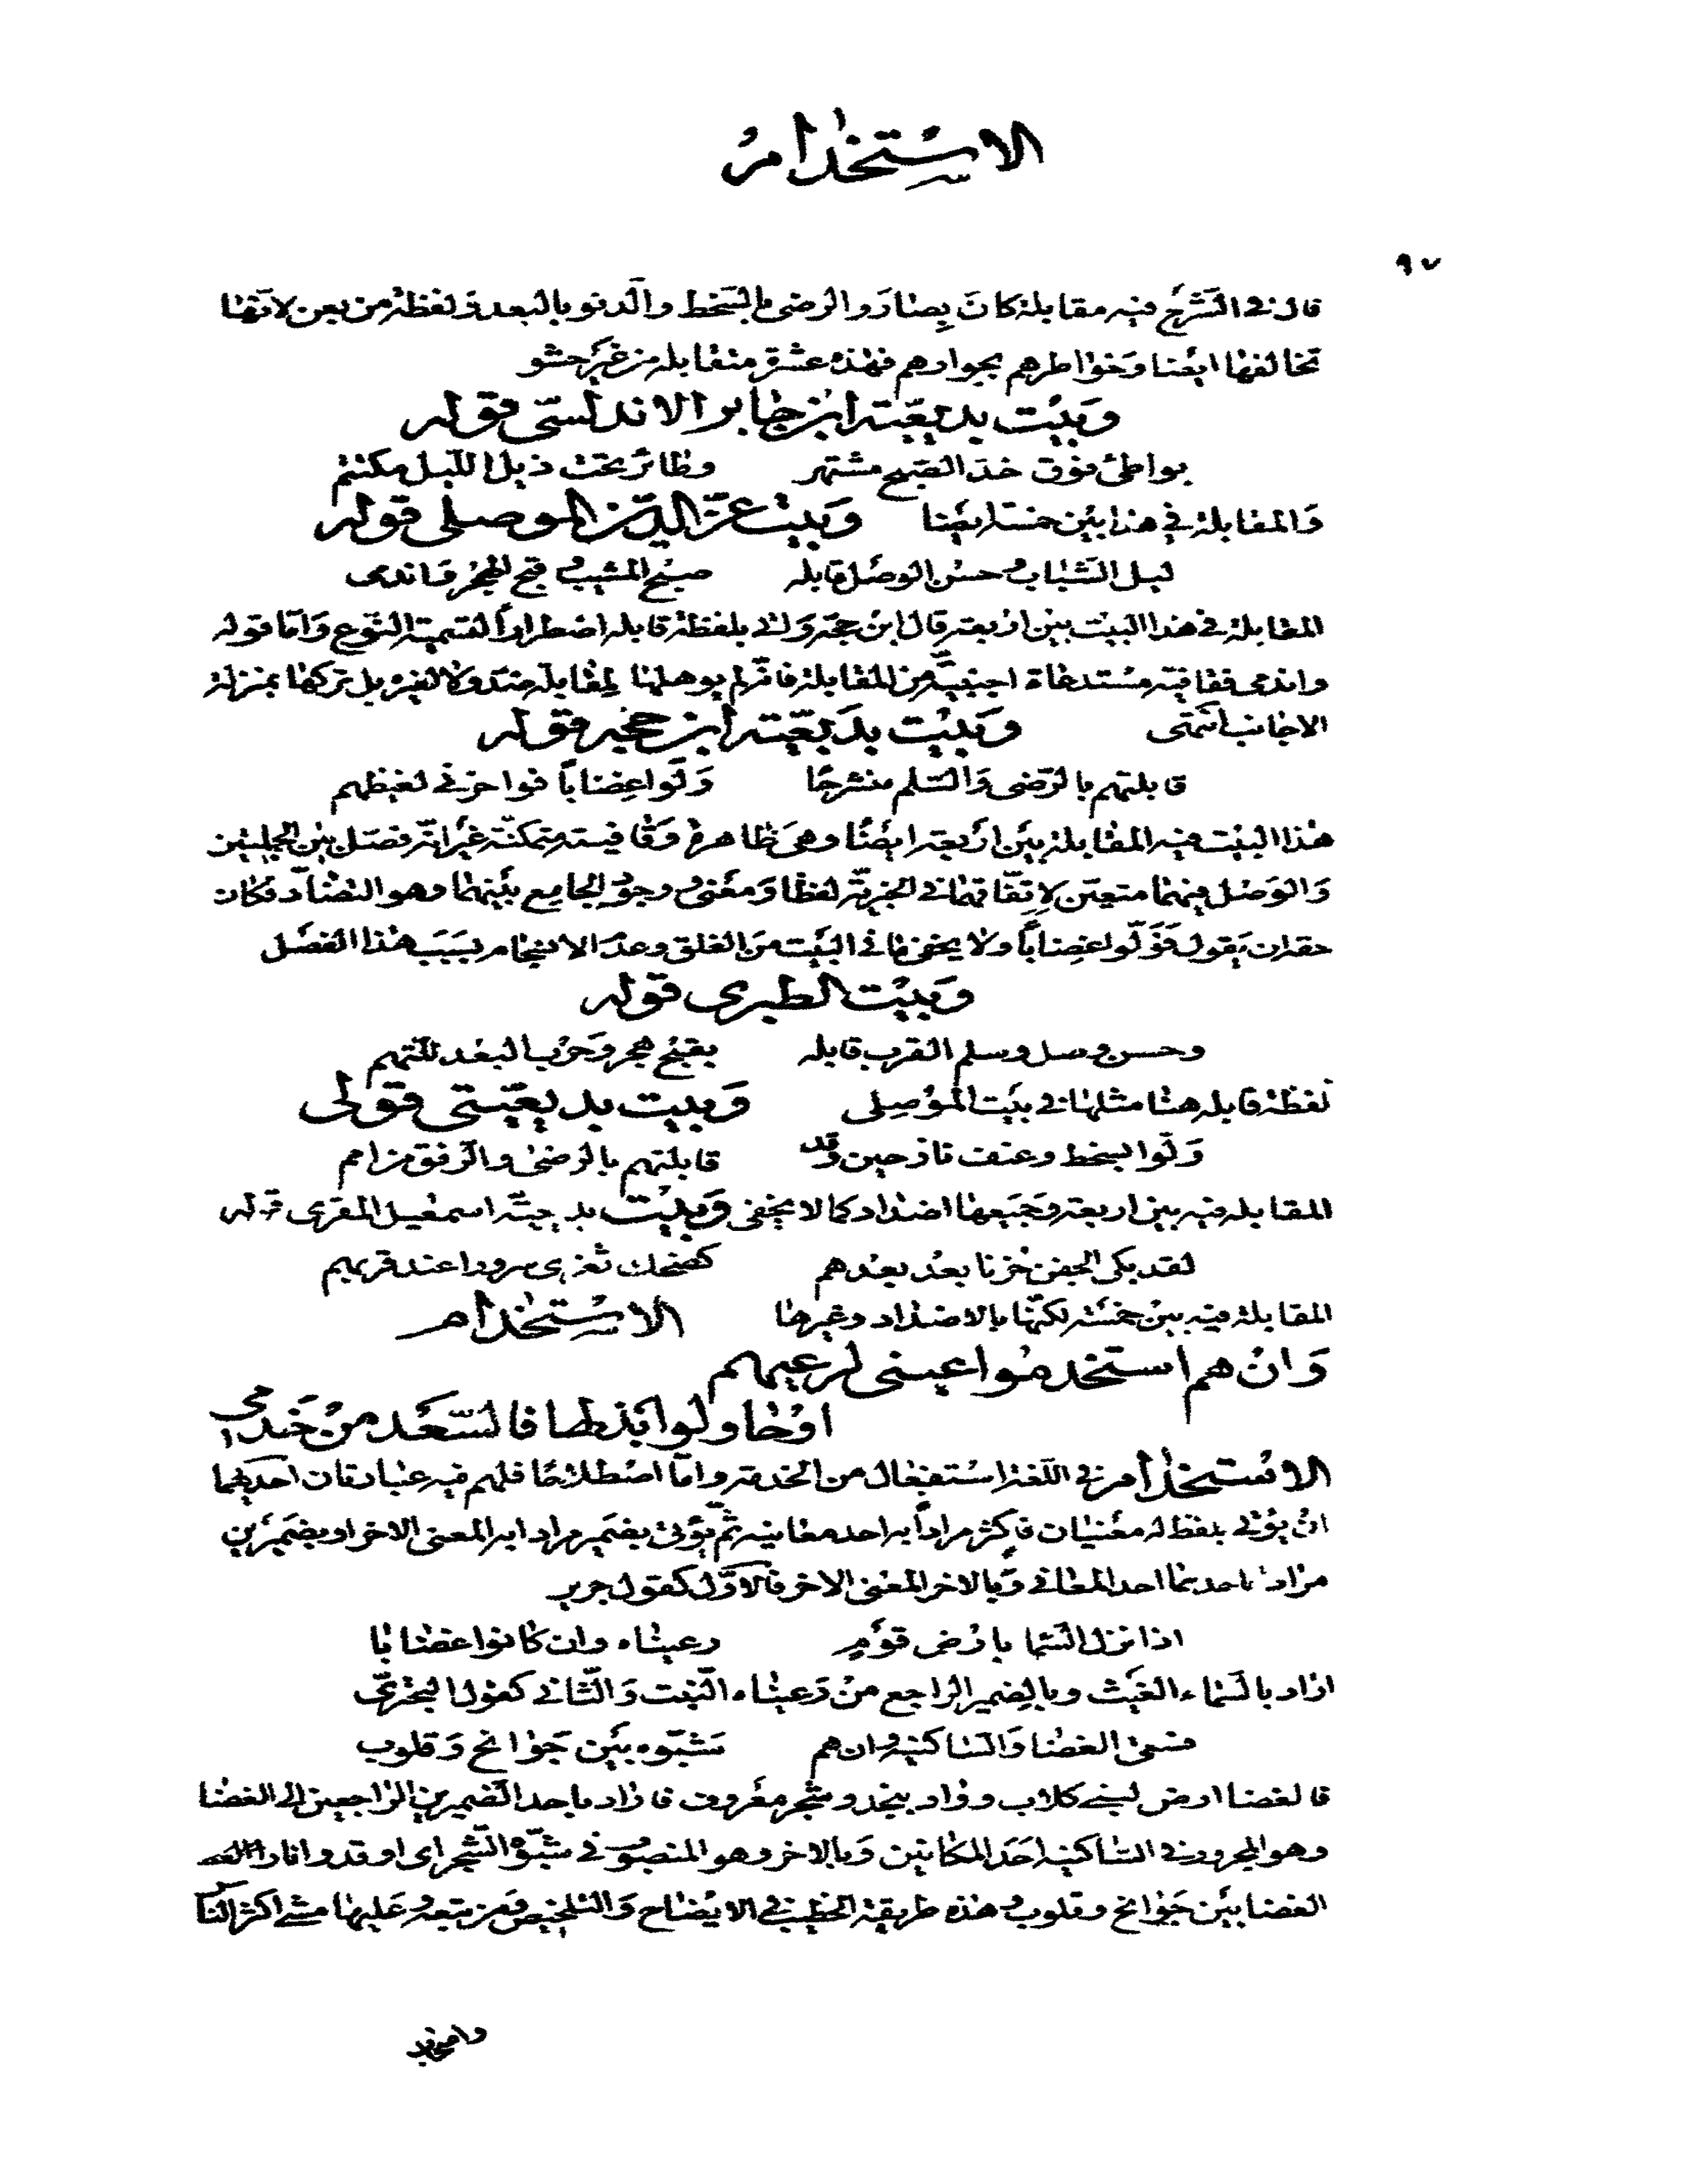 الاستخدام
٩٧
قال في الشرح فيه مقابلة كان بصار والرضى بالسخط والدنو بالبعد ولفظة من بعن لانها
تخالفها ايضا وخواطرهم بجوارهم فهذه عشرة متقابله من غير حشو
وبيت بديعية ابن جابر الاندلسي قوله
بواطئ فوق خد الصبح مشتهر وطائر تحت ذيل الليل مكتتم
والمقابلة في هذا بين خمسة ايضا وبيت عز الدين الموصلي قوله
ليل الشباب وحسن الوصل قابله صبح المشيب وقبح الهجر فاندمى
المقابلة في هذا البيت بين اربعة قال ابن حجة واتى بلفظة قابله اضطرارا لتسمية النوع واما قوله
واندمى فقافية مستدعاة اجنبية من المقابلة فانه لم يوهلها لمقابلة ضد ولا لغيره بل تركها بمنزلة
الاجانب انتهى وبيت بديعية ابن حجة قوله
قابلتهم بالرضى والسلم منشرحا ولوا غضابا فواحزني لغيظهم
هذا البيت فيه المقابلة بين اربعة ايضا وهي ظاهرة وقافيته متمكنة غير انه فصل بين الجملتين
والوصل بينهما متعين لاتفاقهما في الخبرية لفظا ومعنى ووجود الجامع بينهما وهو التضاد فكان
حقه ان يقول فولوا غضابا ولا يخفى ما في البيت من القلق وعدم الانسجام بسبب هذا الفصل
وبيت الطبري قوله
وحسن وصل وسلم القرب قابله بقبح هجر وحرب البعد للتهم
لفظة قابله هنا مثلها في بيت الموصلي وبيت بديعيتي قولي
ولوا بسخط وعنف نازحين وقد قابلتهم بالرضى والرفق من امم
المقابله فيه بين اربعة وجميعها اضداد كما لا يخفى وبيت بديعية اسمعيل المقري قوله
لقد بكى الجفن حزنا بعد بعدهم كضحك ثغري سرورا عند قربهم
المقابلة فيه بين خمسة لكنها بالاضداد وغيرها الاستخدام
وان هم استخدموا عيني لرعيهم
او حاولوا بذلها فالسعد من خدمي
الاستخدام في اللغة استفعال من الخدمة واما اصطلاحا فلهم فيه عبارتان احديهما
ان يؤتى بلفظ له معنيان فاكثر مرادا به احد معانيه ثم يؤتى بضمير مرادا به المعنى الاخر او بضميرين
مرادا باحدهما احد المعاني وبالاخر المعنى الاخر فالاول كقول جرير
اذا نزل السما بارض قوم رعيناه وان كانوا غضابا
اراد بالسماء الغيث وبالضمير الراجع من رعيناه النبت والثاني كقول البحتري
فسقى الغضا والساكنيه وان هم شبوه بين جوانح وقلوب
فالغضا ارض لبني كلاب وواد بنجد وشجر معروف فاراد باحد الضميرين الراجعين الى الغضا
وهو المجرور في الساكنيه احد المكانين وبالاخر وهو المنصوب في شبوه الشجر اى اوقدوا نار
الغضا بين جوانح وقلوب وهذه طريقة الخطيب في الايضاح والتلخيص ومن تبعه وعليها مشى اكثر الناس